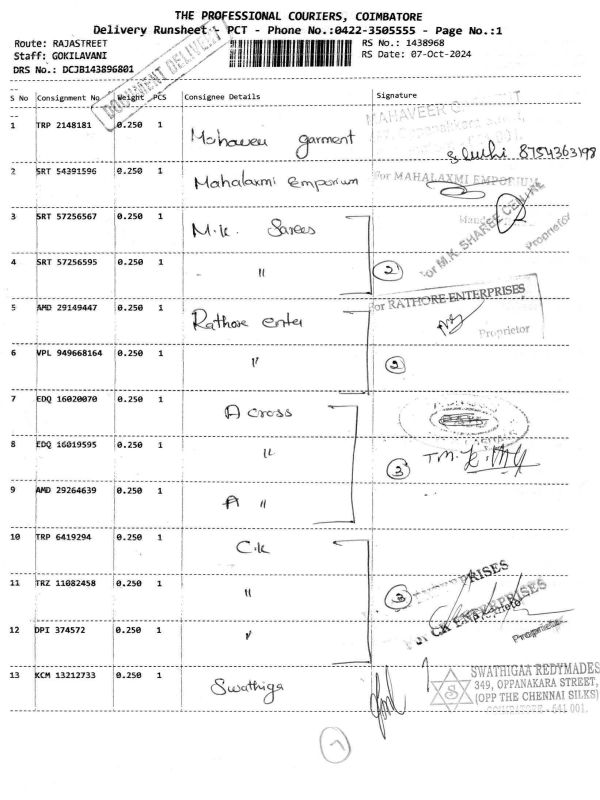 THE PROFESSIONAL COURIERS, COIMBATORE
Delivery Runsheet - PCT - Phone No.:0422-3505555 - Page No.:1
Route: RAJASTREET RS No.: 1438968
Staff: GOKILAVANI RS Date: 07-Oct-2024
DRS No.: DCJB143896801
DOCUMENT DELIVERY
S No Consignment No Weight PCS Consignee Details Signature
MAHAVEER
1 TRP 2148181 0.250 1 Mahaveer garment
8754363198
2 SRT 54391596 0.250 1 Mahalaxmi Emporium For MAHALAXMI EMPORIUM
3 SRT 57256567 0.250 1 M.K. Sarees
For M.K. SHAREE CENTRE
Proprietor
4 SRT 57256595 0.250 1 - " 2
5 AMD 29149447 0.250 1 Rathore enter For RATHORE ENTERPRISES
Proprietor
6 VPL 949668164 0.250 1 " 2
7 EDQ 16020070 0.250 1 A cross
8 EDQ 16019595 0.250 1 " 3
9 AMD 29264639 0.250 1 A "
10 TRP 6419294 0.250 1 C.K
11 TRZ 11082458 0.250 1 " 3
For CK ENTERPRISES
12 DPI 374572 0.250 1 " Proprietor
13 KCM 13212733 0.250 1 Swathiga
S
SWATHIGAA REDYMADES
349, OPPANAKARA STREET,
(OPP THE CHENNAI SILKS)
COIMBATORE - 641 001.
7